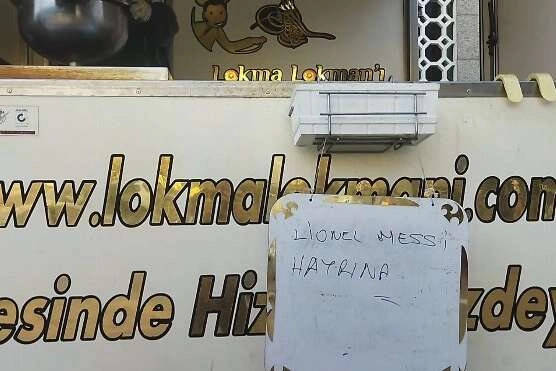 Lokma Lokman'ı
www.lokmalokmani.com
LİONEL MESSİ
HAYRINA
esinde Hiz zdey